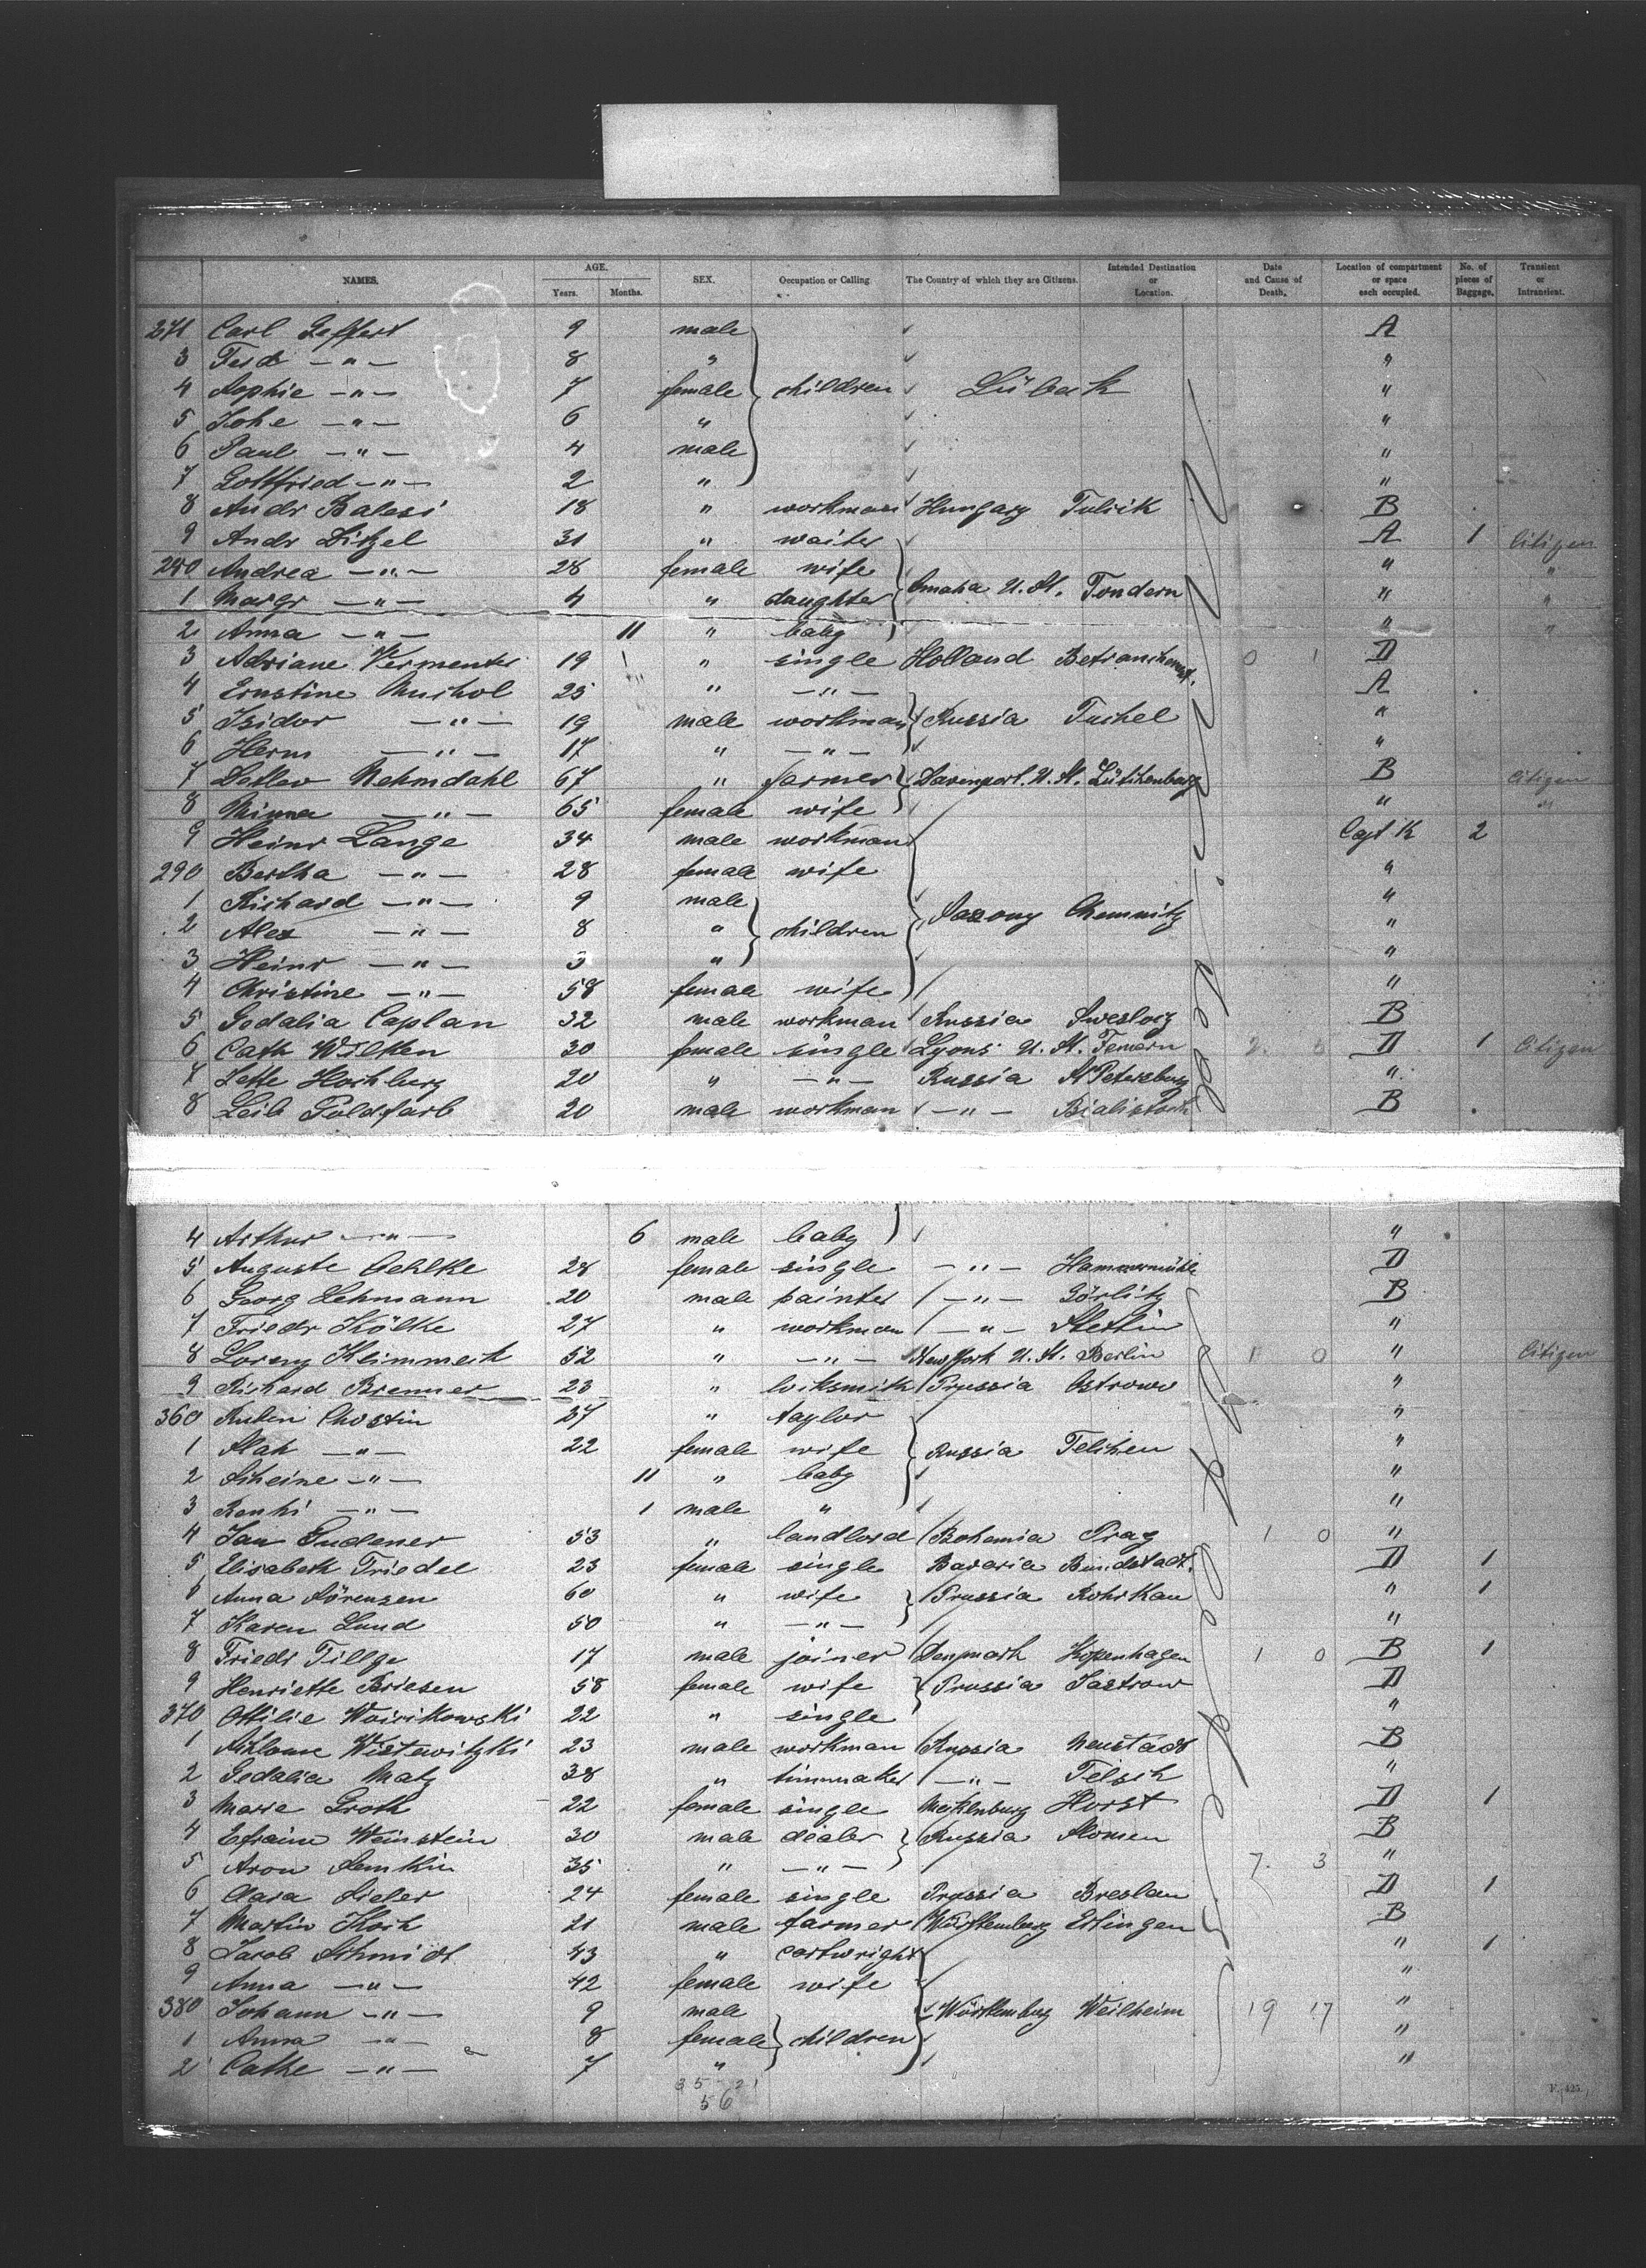 NAMES. AGE. Years. Months. SEX. Occupation or Calling The Country of which they are Citizens. Intended Destination or Location. Date and Cause of Death. Location of compartment or space each occupied. No. of pieces of Baggage. Transient or Intransient.
271 Carl Seffert 9 male A
3 Ferd -"- 8 " "
4 Sophie -"- 7 female children Lübeck "
5 Johe -"- 6 " "
6 Paul -"- 4 male "
7 Gottfried -"- 2 " "
8 Andr Balasi 18 " workman Hungary B
9 Andr Ditzel 31 " waiter A 1 Citizen
280 Andrea -"- 28 female wife " "
1 Margr -"- 4 " daughter Omaha U. St. Tondern " "
2 Anna -"- 11 " baby " "
3 Adriane 19 " single Holland 0 1 D
4 Ernstine Muchol 25 " -"- A
5 Isidor -"- 19 male workman Russia Tuchel "
6 Herm -"- 17 " -"- "
7 Detlev Mehmdahl 67 " farmer Davenport U. St. Lütchenburg B Citizen
8 Minna -"- 65 female wife " "
9 Heinr Lange 34 male workman Cajt K 2
290 Bertha -"- 28 female wife "
1 Richard -"- 9 male Saxony Chemnitz "
2 Alex -"- 8 " children "
3 Heinr -"- 3 " "
4 Christine -"- 58 female wife "
5 Gedalia Caplan 32 male workman Russia B
6 Cath Wilken 30 female single Lyons U. St. Femern 2. D 1 Citizen
7 Jette Hochburg 20 " -"- Russia St Petersburg "
8 Leib Goldfarb 20 male workman -"- Bialistock B
4 Arthur -"- 6 male baby "
5 Auguste Oehlke 28 female single -"- Hammermühle D
6 Georg Lehmann 20 male painter -"- Görlitz B
7 Friedr Kölke 27 " workman -"- Stettin "
8 Lorenz Klimmeck 52 " -"- New York U. St. Berlin 1 0 " Citizen
9 Richard Brenner 23 " loiksmith Prussia Ostrowo "
360 Ruben Chostin 37 " taylor "
1 Slak -"- 22 female wife Russia Telchen "
2 Scheine -"- 11 " baby "
3 -"- 1 male " "
4 Jan Gudener 53 " landlord Bohemia Prag 1 0 "
5 Elisabeth Friedel 23 female single Bavaria D 1
6 Anna Sörensen 60 " wife Prussia Rohrkau " 1
7 Karen Lund 50 " -"- "
8 Friedr Tillge 17 male joiner Denmark Kopenhagen 1 0 B 1
9 Henriette Briesen 58 female wife Prussia Jastrow D
370 Ottilie Woicikowski 22 " single "
1 Wistewitzki 23 male workman Russia Neustadt B
2 Gedalia Matz 38 " -"- "
3 Marie Groth 22 female single Meklenburg Horst D 1
4 Efraim Weinstein 30 male dealer Russia B
5 Aron Lemkin 35 " -"- 7. 3 "
6 Clara Sieler 24 female single Prussia Breslau D 1
7 Martin Koch 21 male farmer Württemberg B
8 Jacob Schmidt 43 " cartwright " 1
9 Anna -"- 42 female wife "
380 Johann -"- 9 male Württemberg Weilheim 19 17 "
1 Anna -"- 8 female children "
2 Cathe -"- 7 " "
35 - 21
56
F. 425.